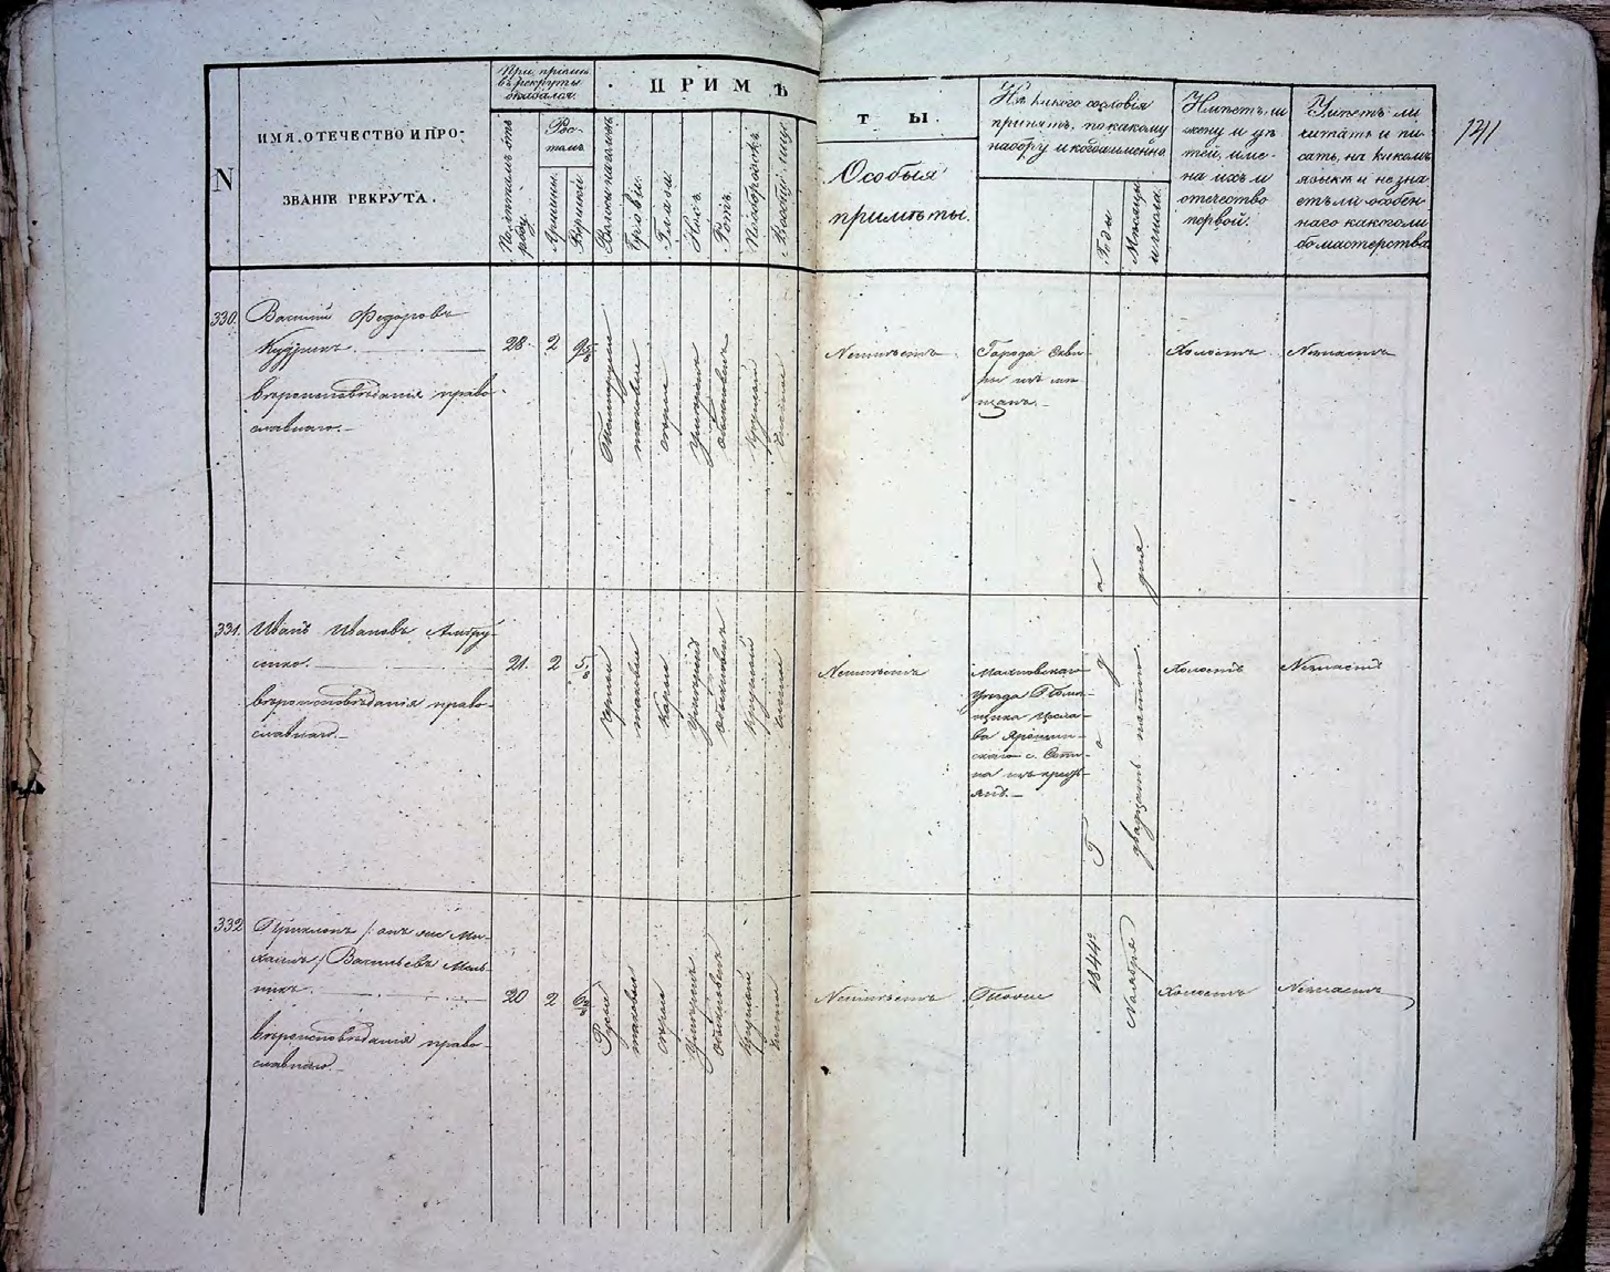 141
N
ИМЯ, ОТЕЧЕСТВО И ПРО-
ЗВАНІЕ РЕКРУТА.
При пріемѣ
въ рекруты
оказался
Полѣтамъ отъ
роду.
Рос-
томъ
Аршинъ.
Вершки
ПРИМѢ
Волосы на головѣ
Брови
Глаза
Носъ
Ротъ
Подбородокъ
ТЫ.
Особыя
примѣты.
Изъ какого сословія
принятъ, по какому
набору и когда именно
Годы
Мѣсяцы
и числа
Имѣетъ ли
жену и дѣ
тей, име-
на ихъ и
отечество
первой.
Умѣетъ ли
читать и пи-
сать, на какомъ
языкѣ и не зна
етъ ли особен-
наго какого ли
бо мастерства
330.
Василій Федоровъ
Кудринъ.
вѣроисповѣданія право
славнаго.
28.
2
таковыя
сѣрые
умѣренъ
обыкновенъ
круглый
чистое
Неимѣетъ
Города Скви-
ры изъ мѣ
щанъ.
Холостъ
Незнаетъ
331.
Иванъ Ивановъ
вѣроисповѣданія право-
славнаго.
21.
2
5
черные
таковыя
карые
умѣренъ
обыкновенъ
круглый
чистое
Неимѣетъ
Махновскаго
уѣзда Помѣ-
щика
изъ кресть-
янъ.
Холостъ
Незнаетъ
332
Филимонъ /: онъ же Ми-
хаилъ :/ Васильевъ Мель-
никъ.
вѣроисповѣданія право-
славнаго.
20
2
Русые
таковыя
сѣрые
умѣренъ
обыкновенъ
круглый
чистое
Неимѣетъ
Холостъ
Незнаетъ
1844го Года
Ноября двадцать пятого дня